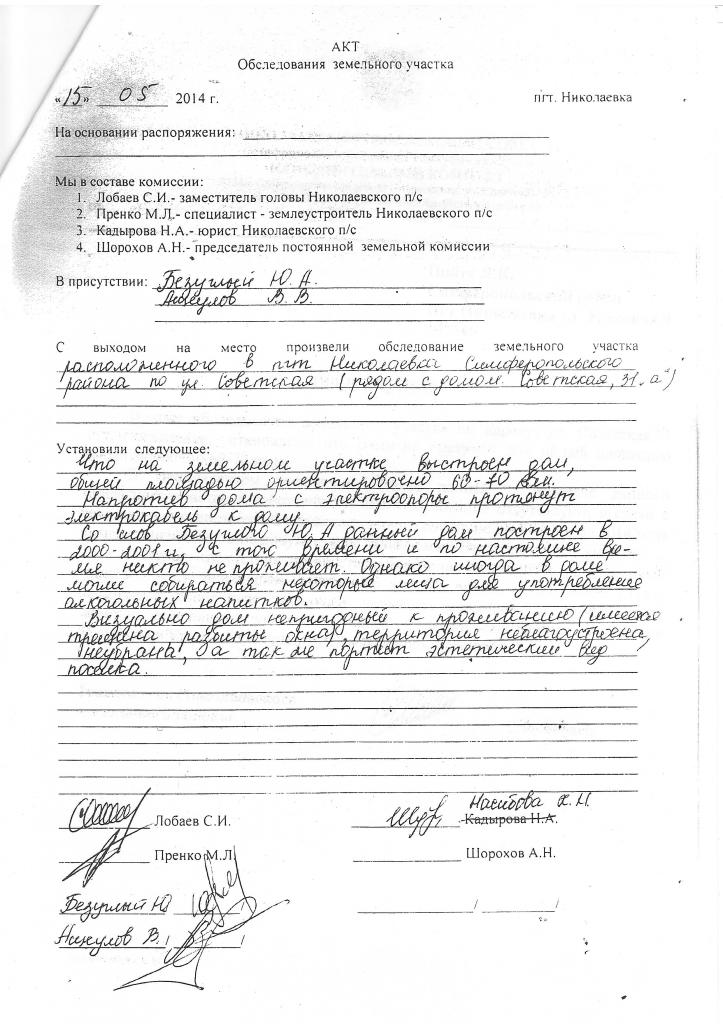 АКТ
Обследования земельного участка
«15» 05 2014 г. пгт. Николаевка
На основании распоряжения:
Мы в составе комиссии:
1. Лобаев С.И.- заместитель головы Николаевского п/с
2. Пренко М.Л.- специалист - землеустроитель Николаевского п/с
3. Кадырова Н.А.- юрист Николаевского п/с
4. Шорохов А.Н.- председатель постоянной земельной комиссии
В присутствии: Безуглый Ю. А.
В. В.
С выходом на место произвели обследование земельного участка
расположенного в пгт Николаевка Симферопольского
района по ул. Советская (рядом с домом Советская, 31 „а")
Установили следующее:
Что на земельном участке выстроен дом,
общей площадью ориентировочно 60-70 кв.м.
Напротив дома с электроопоры протянут
электрокабель к дому.
Со слов Безуглого Ю.А данный дом построен в
2000-2001 г., с того времени и по настоящие вре-
мя никто не проживает. Однако иногда в доме
могли собираться некоторые лица для употребление
алкогольных напитков.
Визуально дом непригодный к проживанию (имеется
трещина, разбиты окна, территория неблагоустроена,
неубрана, а так же портит эстетический вид
поселка.
Лобаев С.И. Насибова Х.Н. Кадырова Н.А.
Пренко М.Л. Шорохов А.Н.
Безуглый Ю / /
Никулов В. / /